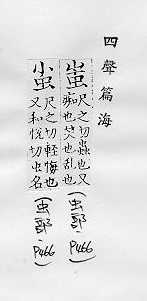 四聲篇海
蚩 尺之切蟲也又
痴也笑也乱也
(虫部 P466)
尺之切輕侮也
又和悅切虫名
(虫部 P466)